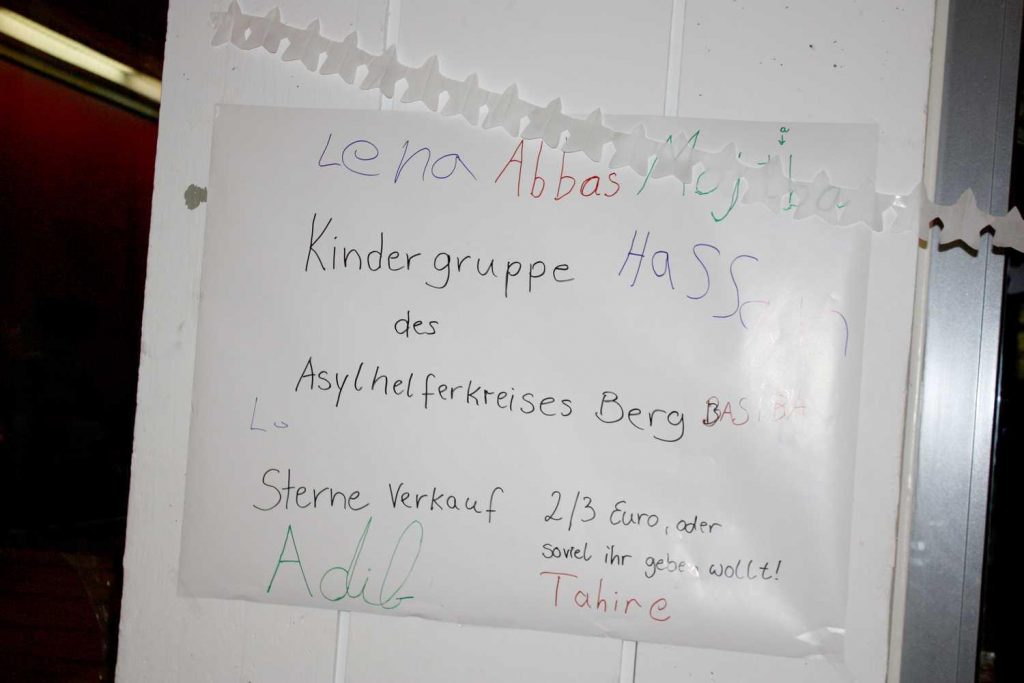 a
Lena Abbas Mojtba
Kindergruppe Hassan
des
Asylhelferkreises Berg BASIBA
Lu
Sterne Verkauf 2/3 Euro, oder
soviel ihr geben wollt!
Adib
Tahire